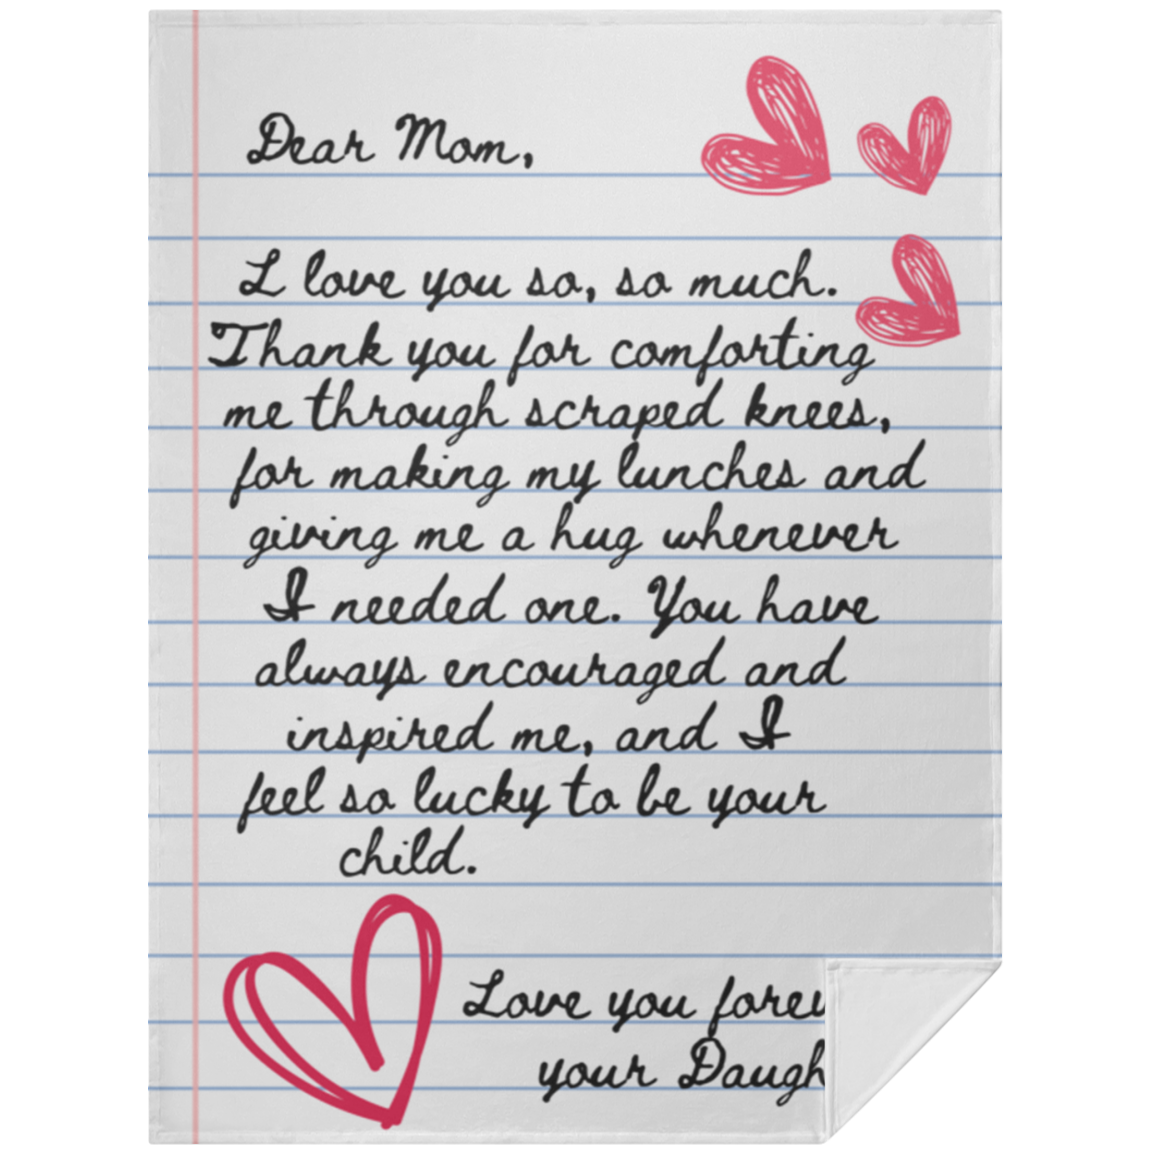 Dear Mom,
I love you so, so much.
Thank you for comforting
me through scraped knees,
for making my lunches and
giving me a hug whenever
I needed one. You have
always encouraged and
inspired me, and I
feel so lucky to be your
child.
Love you forev
your Daugh